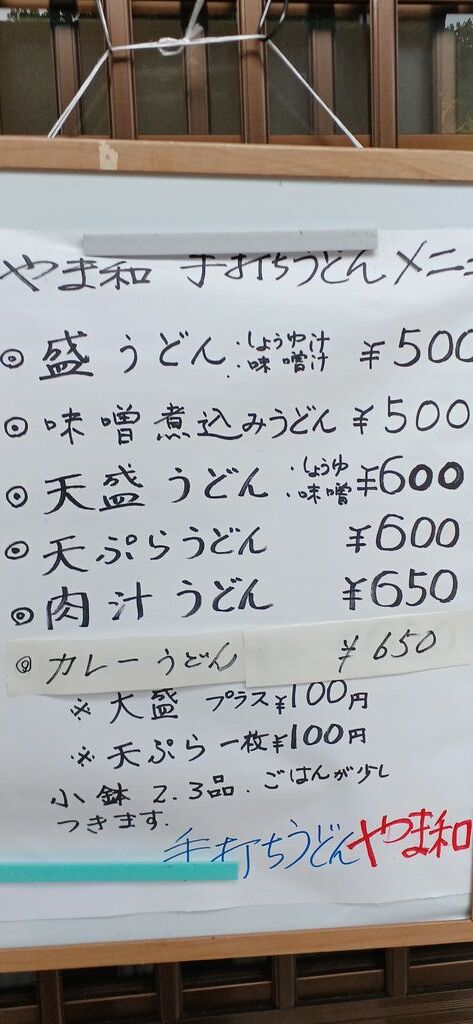 やま和 手打ちうどん メニュ
◎ 盛うどん ・しょうゆ汁 ・味噌汁 ¥500
◎ 味噌煮込みうどん ¥500
◎ 天盛うどん ・しょうゆ ・味噌 ¥600
◎ 天ぷらうどん ¥600
◎ 肉汁うどん ¥650
◎ カレーうどん ¥650
※ 大盛 プラス¥100円
※ 天ぷら一枚¥100円
小鉢 2.3品.ごはんが少し
つきます.
手打ちうどんやま和